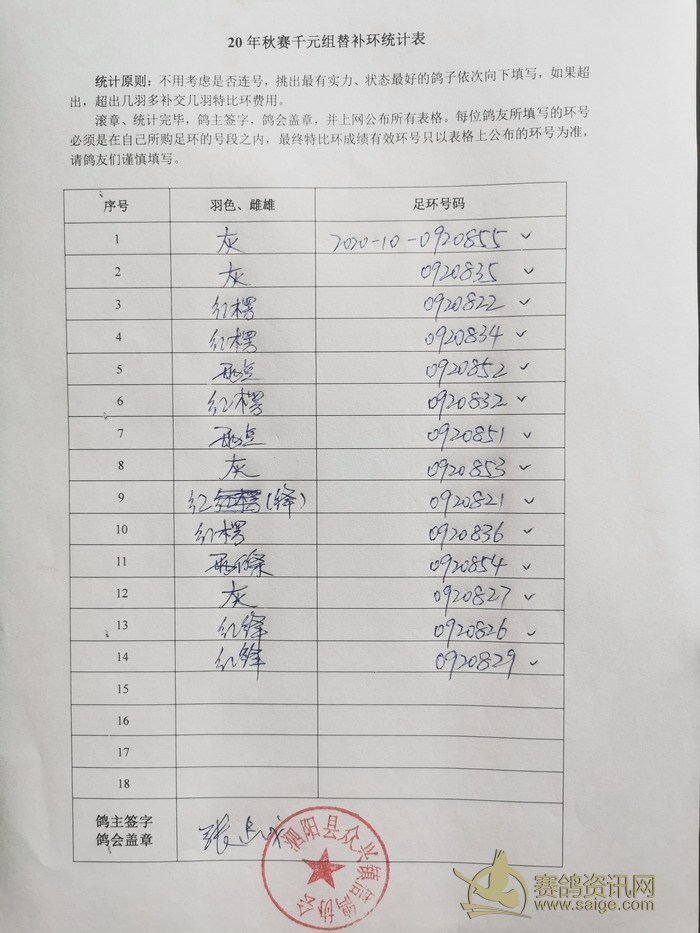 20 年秋赛千元组替补环统计表
统计原则：不用考虑是否连号，挑出最有实力、状态最好的鸽子依次向下填写，如果超
出，超出几羽多补交几羽特比环费用。
滚章、统计完毕，鸽主签字，鸽会盖章，并上网公布所有表格。每位鸽友所填写的环号
必须是在自己所购足环的号段之内，最终特比环成绩有效环号只以表格上公布的环号为准，
请鸽友们谨慎填写。
序号 羽色、雌雄 足环号码
1 灰 2020-10-0920855
2 灰 0920835
3 红楞 0920822
4 红楞 0920834
5 雨点 0920852
6 红楞 0920832
7 雨点 0920851
8 灰 0920853
9 红(绛) 0920821
10 红楞 0920836
11 雨條 0920854
12 灰 0920827
13 红绛 0920826
14 红绛 0920829
15
16
17
18
鸽主签字
鸽会盖章
泗阳县众兴镇信鸽协会
赛鸽资讯网
www.saige.com